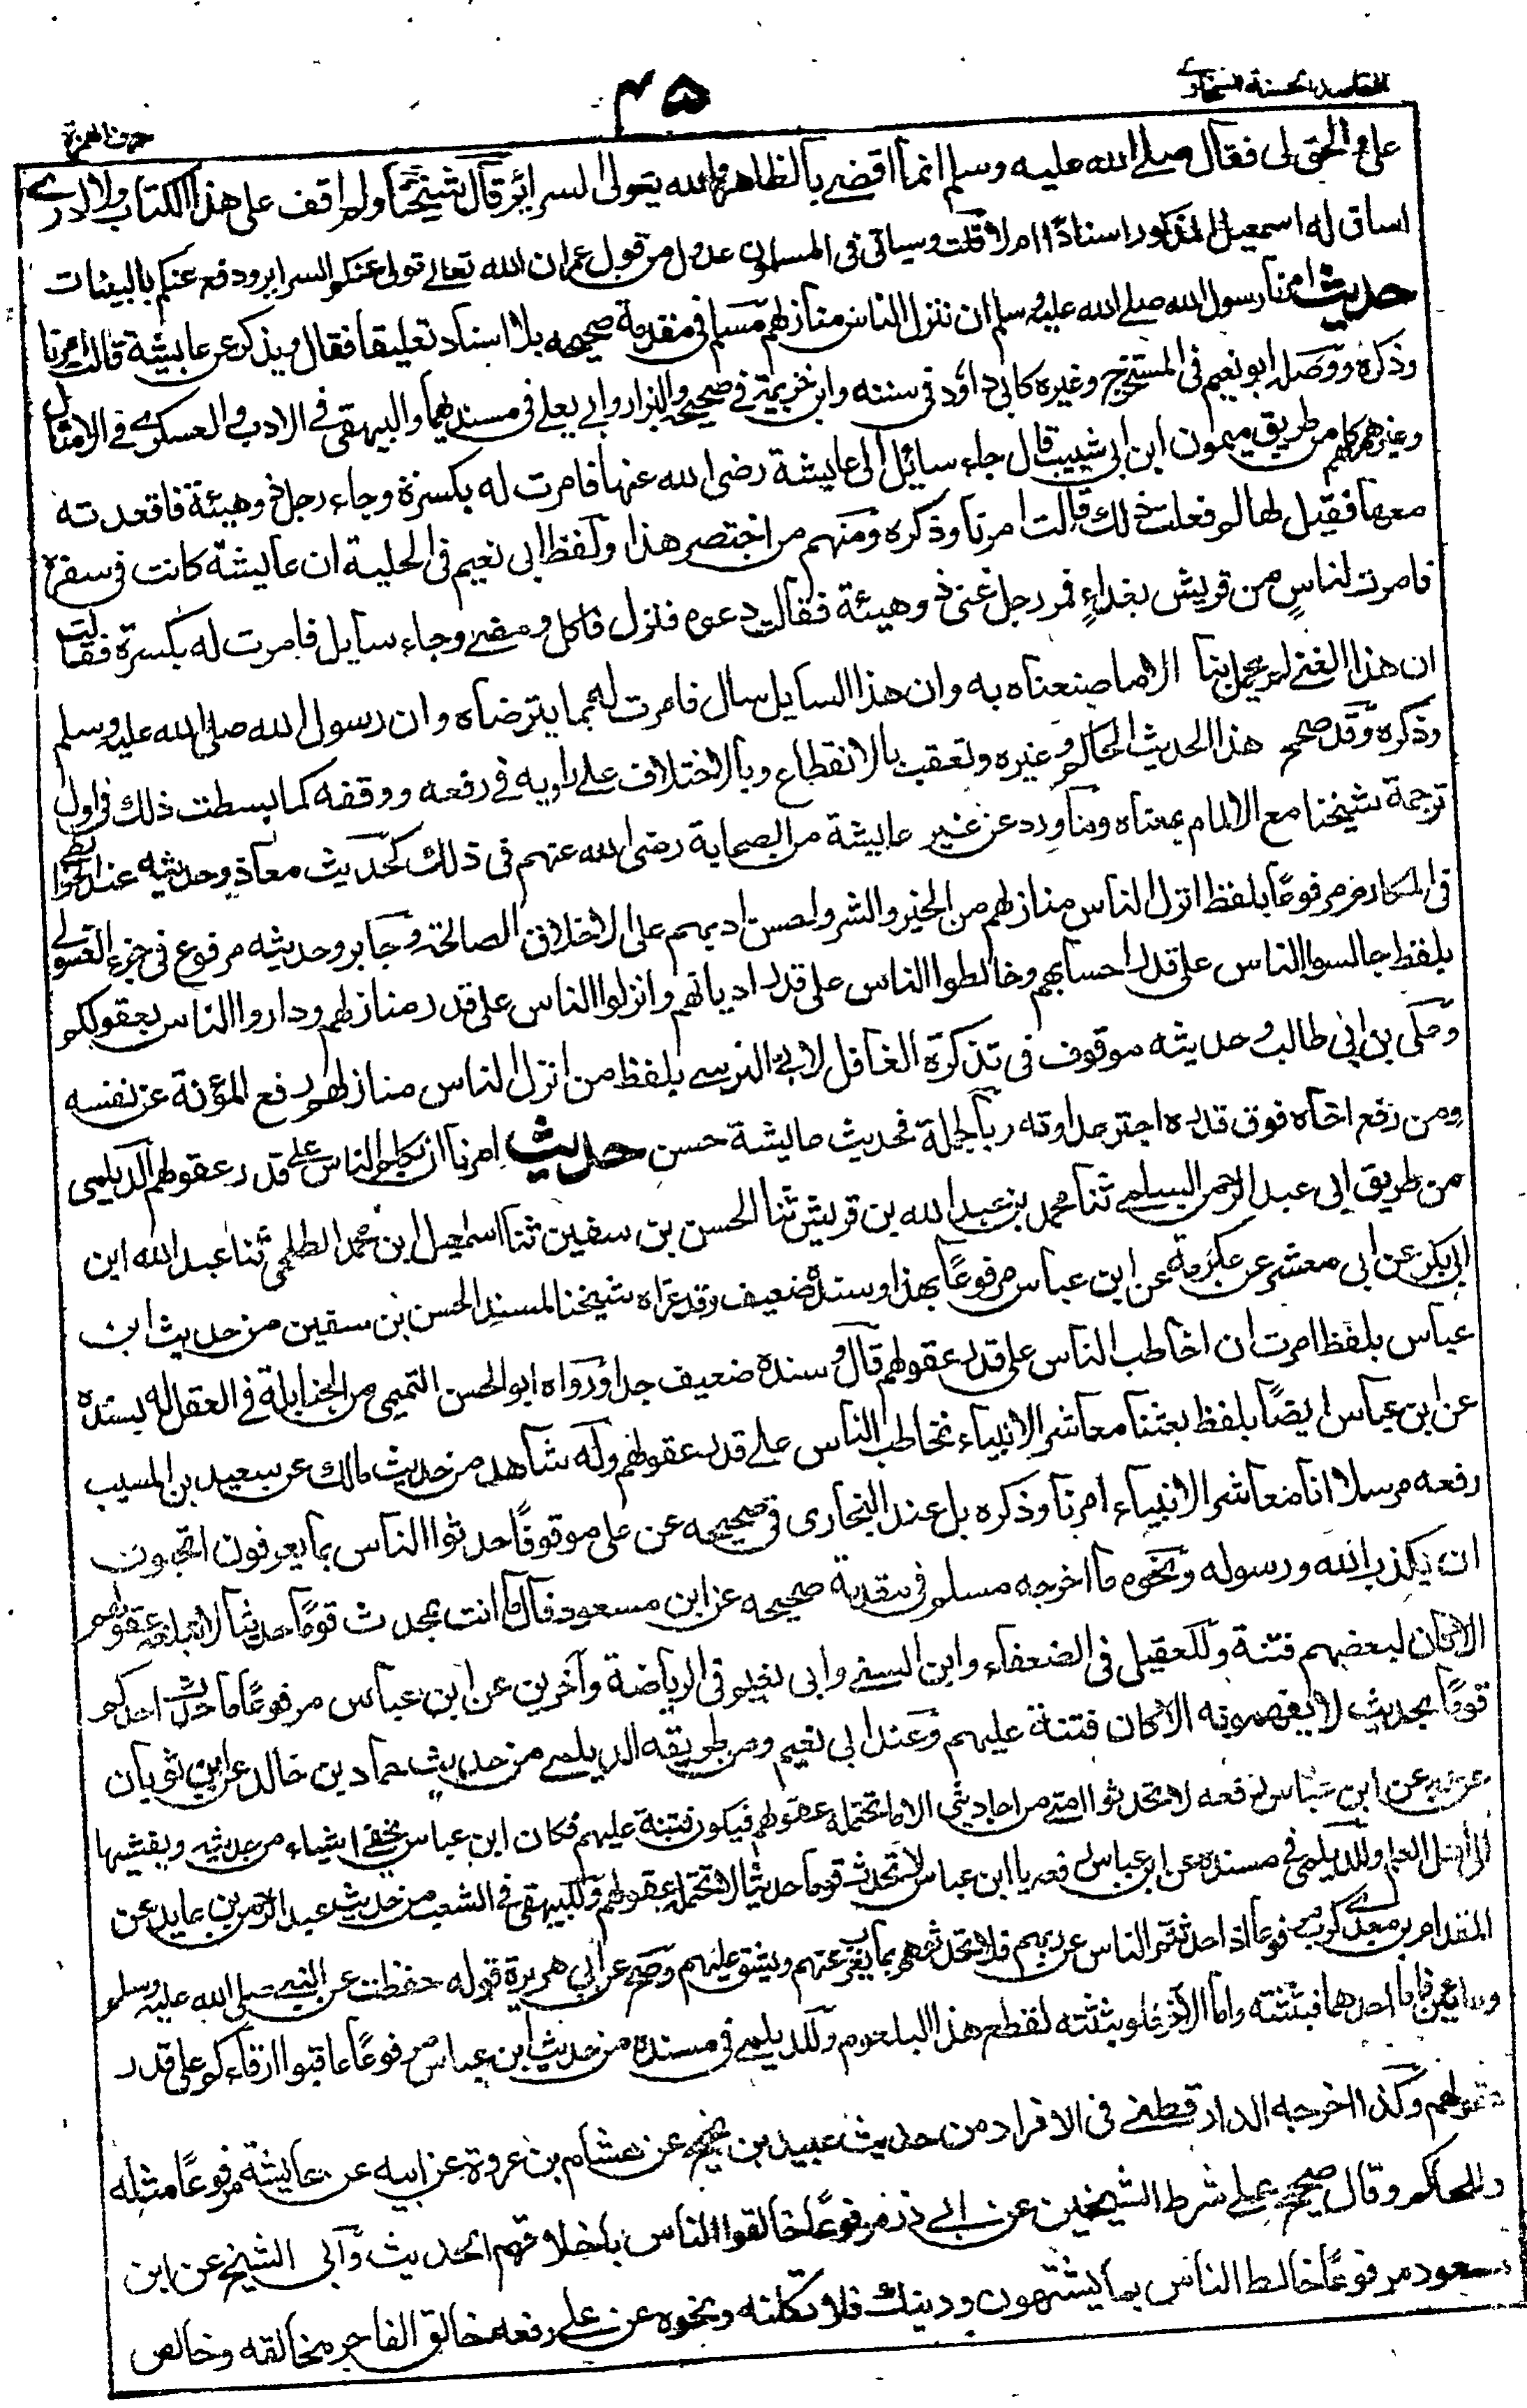 المقاصد الحسنة للسخاوي
٤٥
حرف الهمزة
على والحق لى فقال صلے الله عليه وسلم انما اقضے بالظاهر والله يتولى السرائر قال شيخنا ولم اقف على هذا الكتاب ولا ادرے
اساق له اسمعيل المذكور اسنادًا ام لا قلت وسياتى فى المسلمون عدول من قول عمر ان الله تعالے تولى عنكم السراير ودفع عنكم بالبينات
حديث امرنا رسول الله صلے الله عليه وسلم ان ننزل الناس منازلهم مسلم فى مقدمة صحيحه بلا اسناد تعليقا فقال ويذكر عن عايشة قالت امرنا
وذكره ووصله ابو نعيم فى المستخرج وغيره كابى داود فى سننه وابن خزيمة فے صحيحه والبزار وابے يعلے فى مسنديهما والبيهقى فے الادب والعسكرے فے الامثال
وغيرهم كلهم من طريق ميمون ابن ابى شبيب قال جاء سائل الى عايشة رضى الله عنها فامرت له بكسرة وجاء رجل ذو هيئة فاقعدته
معها فقيل لها لم فعلت ذلك قالت امرنا وذكره ومنهم من اختصر هذا ولفظ ابى نعيم فى الحلية ان عايشة كانت فى سفره
فامرت لناسٍ من قريش بغداءٍ فمر رجل غنى ذو هيئة فقالت ادعوه فنزل فاكل ومضے وجاء سايل فامرت له بكسرة فقالت
ان هذا الغنے لم يجمل بنا الا ما صنعناه به وان هذا السايل سال فامرت له بما يترضاه وان رسول الله صلى الله عليه وسلم
وذكره وقد صحح هذا الحديث الحاكم وغيره وتعقب بالانقطاع وبالاختلاف علے راويه فے رفعه ووقفه كما بسطت ذلك فى اول
ترجمة شيخنا مع الالمام بمعناه وما ورد عن غير عايشة من الصحابة رضى الله عنهم فى ذلك كحديث معاذ وحديثه عند الخرايطے
فى المكارم مرفوعًا بلفظ انزل الناس منازلهم من الخير والشر واحسن ادبهم على الاخلاق الصالحة وجابر وحديثه مرفوع فى جزء الغسولے
بلفظ جالسوا الناس على قدر احسابهم وخالطوا الناس على قدر اديانهم وانزلوا الناس على قدر منازلهم وداروا الناس بعقولكم
وعلى بن ابى طالب وحديثه موقوف فى تذكرة الغافل لابى النرسے بلفظ من انزل الناس منازلهم رفع المؤنة عن نفسه
ومن رفع اخاه فوق قدره اجتر عداوته وبالجملة فحديث عايشة حسن حديث امرنا ان نكلم الناس علے قدر عقولهم الديلمى
من طريق ابى عبد الرحمن السلمے ثنا محمد بن عبد الله بن قريش ثنا الحسن بن سفين ثنا اسمعيل ابن محمد الطلحى ثنا عبد الله ابن
ابى بكر عن ابى معشر عن عكرمة عن ابن عباس مرفوعًا بهذا وسنده ضعيف وقد عزاه شيخنا لمسند الحسن بن سفين من حديث ابن
عباس بلفظ امرت ان اخاطب الناس على قدر عقولهم قال وسنده ضعيف جدا ورواه ابو الحسن التميمى من الحنابلة فے العقل له بسنده
عن ابن عباس ايضًا بلفظ بعثنا معاشر الانبياء نخاطب الناس علے قدر عقولهم وله شاهد من حديث مالك عن سعيد بن المسيب
رفعه مرسلا انا معاشر الانبياء امرنا وذكره بل عند البخارى فى صحيحه عن على موقوفًا حدثوا الناس بما يعرفون اتحبون
ان يكذب الله ورسوله ونحوه ما اخرجه مسلم فى مقدمة صحيحه عن ابن مسعود قال ما انت بمحدث قومًا حديثا لا تبلغه عقولهم
الا كان لبعضهم فتنة وللعقيلى فى الضعفاء وابن السنے وابى نعيم فى الرياضة وآخرين عن ابن عباس مرفوعًا ما حدث احدكم
قومًا بحديث لا يفهمونه الا كان فتنة عليهم وعند ابى نعيم ومن طريقه الديلمے من حديث حماد بن خالد عن ابن ثوبان
عن عمه عن ابن عباس رفعه لا تحدثوا امتے من احاديثى الا ما تحتمله عقولهم فيكون فتنة عليهم فكان ابن عباس يخفے اشياء من حديثه ويفشيها
الى اهل العلم وللديلمى فے مسنده عن ابن عباس رفعه يا ابن عباس لا تحدث قوما حديثا لا تحتمله عقولهم وللبيهقى فے الشعب من حديث عبد الرحمن بن عايد عن
المقدام بن معدے كرب مرفوعا اذا حدثتم الناس عن ربهم فلا تحدثوهم بما يغرب عنهم ويشق عليهم وصح عن ابى هريرة قوله حفظت عن النبے صلى الله عليه وسلم
وعائين فاما احدهما فبثثته واما الآخر فلو بثثته لقطع هذا البلعوم وللديلمے فى مسنده من حديث ابن عباس مرفوعًا عاقبوا ارقاءكم على قدر
عقولهم وكذا اخرجه الدارقطنے فى الافراد من حديث عبيد بن نجيح عن هشام بن عروة عن ابيه عن عايشة مرفوعًا مثله
وللحاكم وقال صحيح علے شرط الشيخين عن ابے ذر مرفوعًا خالقوا الناس باخلاقهم الحديث ولابى الشيخ عن ابن
مسعود مرفوعًا خالط الناس بما يشتهون ودينك فلا تكلمنه ونحوه عن علے رفعه خالق الفاجر مخالقه وخالص